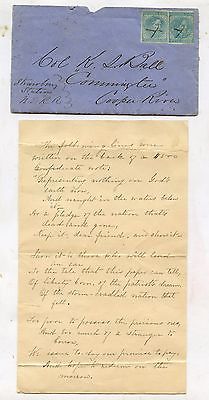 Col K. S. Ball
"Comingtee"
Cooper River
Strawberry
Station
N. E. R. R.
The following lines were
written on the back of a $500
Confederate note.
"Representing nothing on God's
earth now,
And naught in the waters below
it,
As a pledge of the nation that's
dead & gone,
Keep it, dear friend, and show it.
Show it to those who will lend
an ear
To the tale that this paper can tell,
Of liberty born, of the patriots dream
Of the storm-cradled nation that
fell.
Too poor to possess the precious ores,
And too much of a stranger to
borrow,
We issue to day our promise to pay,
And hope to redeem on the
morrow.